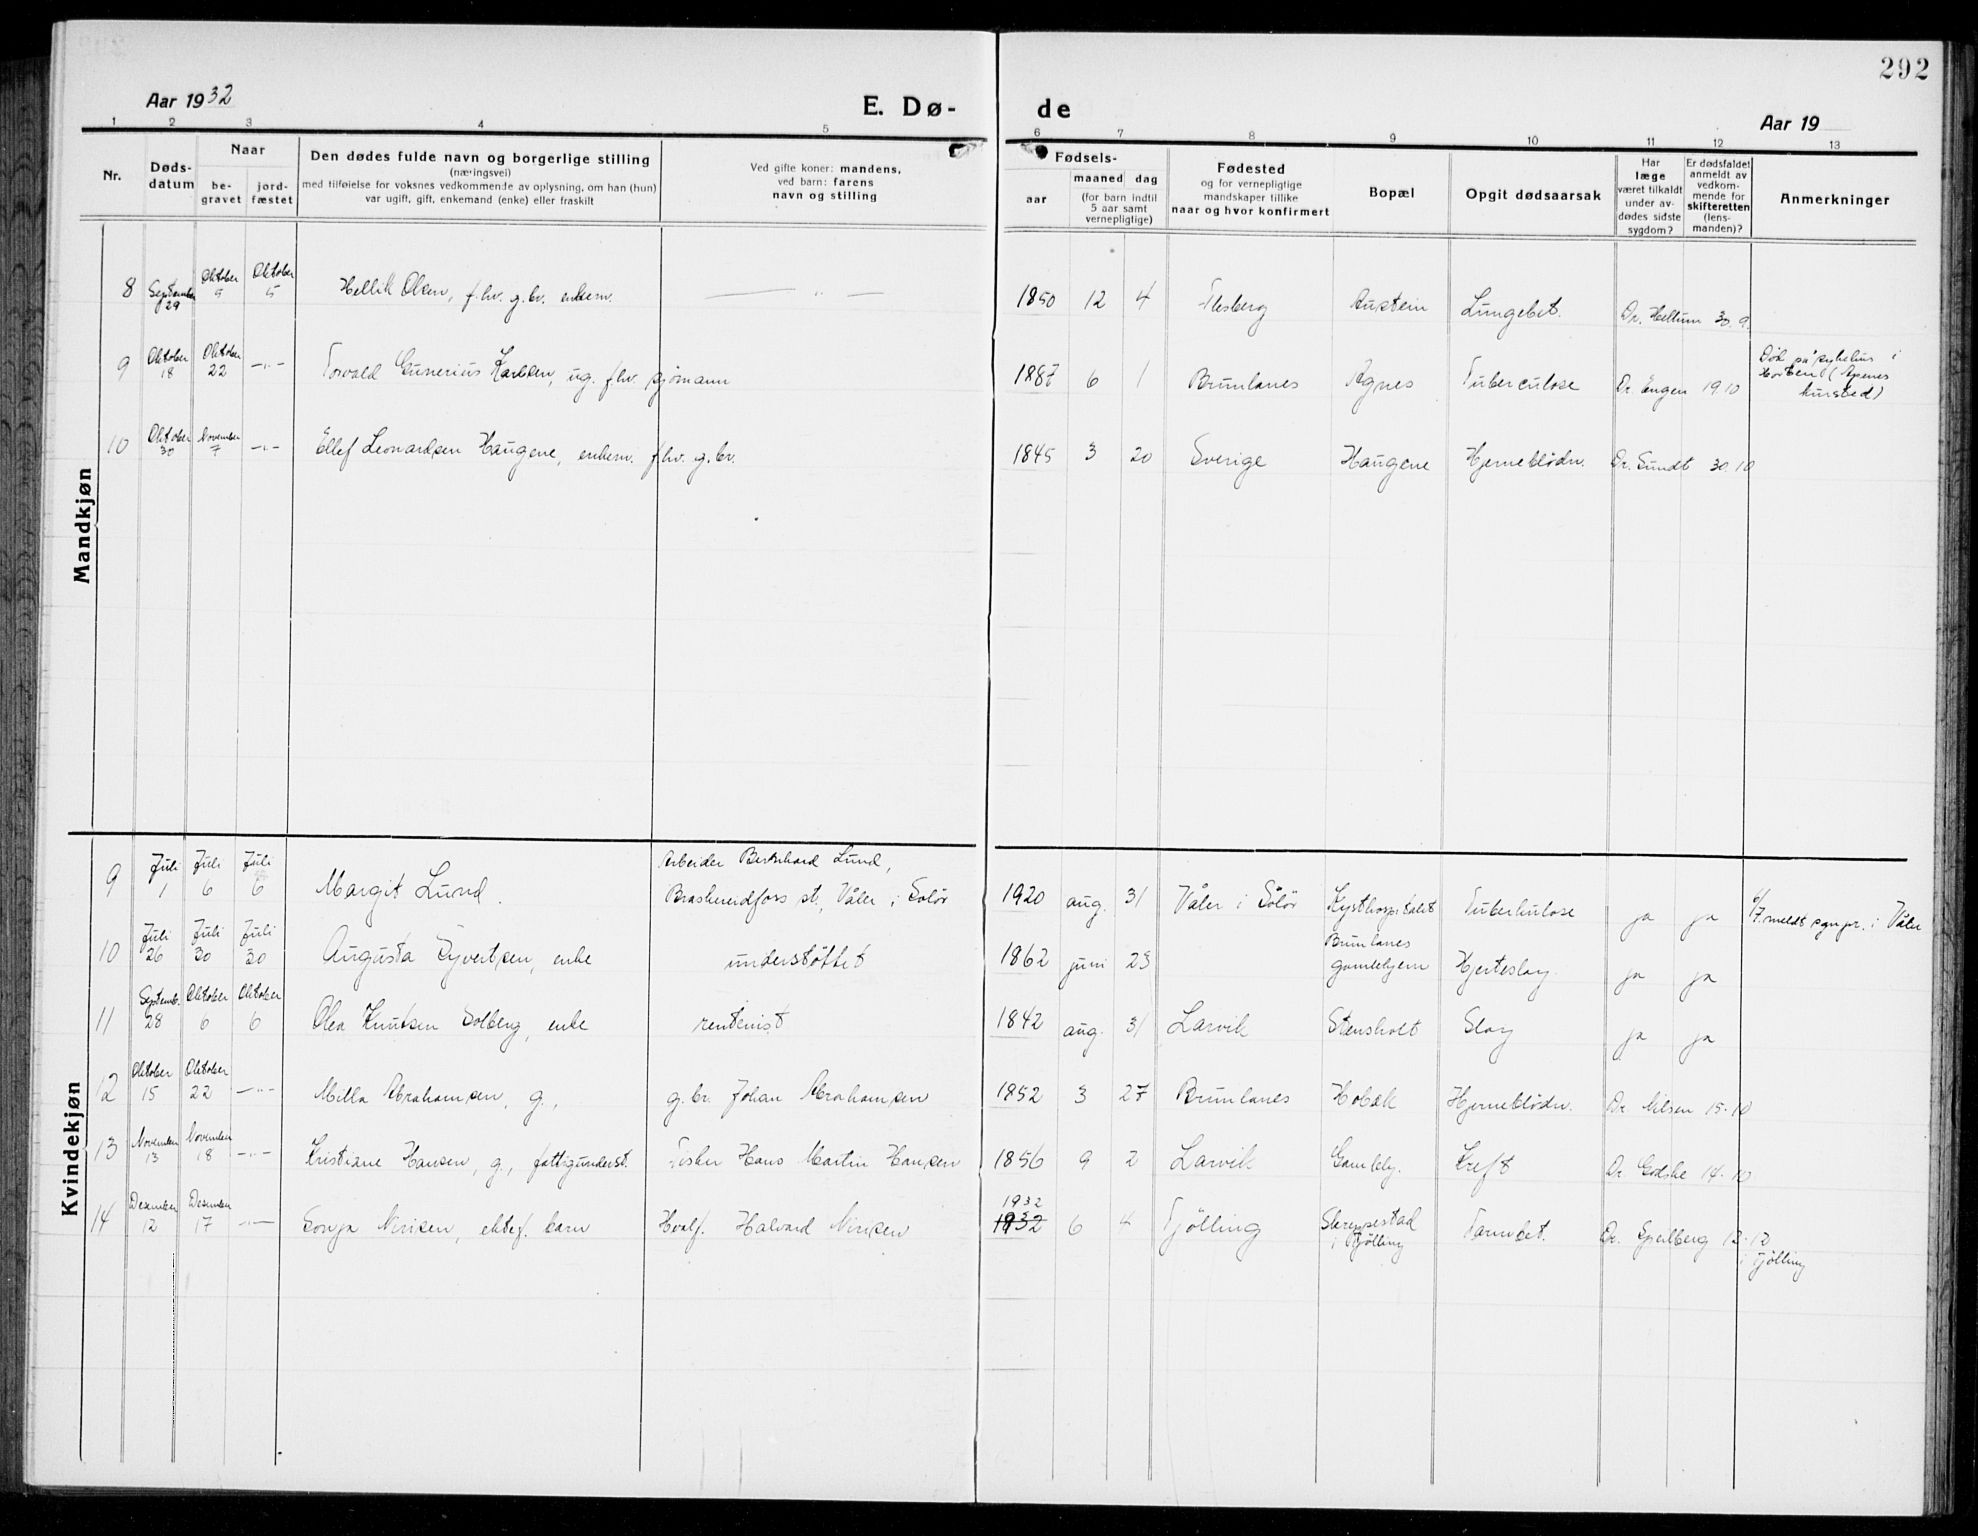 292
Aar 1932
E. Dø-
de
Aar 19
1 2 3 4 5 6 7 8 9 10 11 12 13
Nr.
Døds-
datum
Naar
be-
gravet
jord-
fæstet
Den dødes fulde navn og borgerlige stilling
(næringsvei)
med tilføielse for voksnes vedkommende av oplysning, om han (hun)
var ugift, gift, enkemand (enke) eller fraskilt
Ved gifte koner: mandens,
ved barn: farens
navn og stilling
Fødsels-
aar
maaned dag
(for barn indtil
5 aar samt
vernepligtige)
Fødested
og for vernepligtige
mandskaper tillike
naar og hvor konfirmert
Bopæl
Opgit dødsaarsak
Har
læge
været tilkaldt
under av-
dødes sidste
sygdom?
Er dødsfaldet
anmeldt av
vedkom-
mende for
skifteretten
(lens-
manden)?
Anmerkninger
Mandkjøn
8 September 29 Oktober 5 Oktober 5 Hellik Olsen, f.hv. g.br. enkem. — „ — 1850 12 4 Flesberg Austein Lungebet. Dr. Hellum 30.9.
9 Oktober 18 Oktober 22 —„— Torvald Gunerius Karlsen, ug. f.hv. sjømann 1887 6 1 Brunlanes Agnes Tuberculose Dr. Engen 19.10 Død på sykehus i
Horten (Apenes
kursted)
10 Oktober 30 November 7 —„— Ellef Leonardsen Haugene, enkem. f.hv. g.br. 1845 3 20 Sverige Haugene Hjerneblødn. Dr. Sundt 30.10
Kvindekjøn
9 Juli 1 Juli 6 Juli 6 Margit Lund. Arbeider Bernhard Lund,
Braskereidfoss st., Våler i Solør 1920 aug. 31 Våler i Solør Kysthospitalet Tuberkulose ja ja 4/7 meldt sgnpr. i Våler
10 Juli 26 Juli 30 Juli 30 Augusta Syvertsen, enke understøttet 1862 juni 23 Brunlanes
gamlehjem Hjerteslag. ja ja
11 Septemb. 28 Oktober 6 Oktober 6 Olea Knutsen Solberg, enke rentenist 1842 aug. 31 Larvik Stensholt Slag ja ja
12 Oktober 15 Oktober 22 —„— Milla Abrahamsen, g., g.br. Johan Abrahamsen 1852 3 27 Brunlanes Hobæk Hjerneblødn. Dr Nilsen 15.10
13 November 13 November 18 —„— Kristiane Hansen, g., fattigunderst. Fisker Hans Martin Hansen 1856 9 2 Larvik Gamlehj. Kreft Dr. Godske 14.10
14 Desember 12 Desember 17 —„— Sonja Nirisen, ektef. barn Hvalf. Halvard Nirisen 1932
1932 6 4 Tjølling Skreppestad
i Tjølling Tarmbet. Dr. Speilberg 12.12
i Tjølling